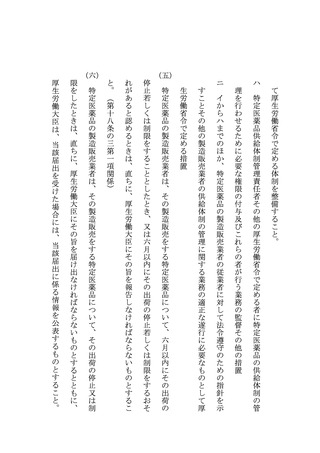 て厚生労働省令で定める体制を整備すること。
ハ　特定医薬品供給体制管理責任者その他の厚生労働省令で定める者に特定医薬品の供給体制の管
理を行わせるために必要な権限の付与及びこれらの者が行う業務の監督その他の措置
ニ　イからハまでのほか、特定医薬品の製造販売業者の従業者に対して法令遵守のための指針を示
すことその他の製造販売業者の供給体制の管理に関する業務の適正な遂行に必要なものとして厚
生労働省令で定める措置
(五)　特定医薬品の製造販売業者は、その製造販売をする特定医薬品について、六月以内にその出荷の
停止若しくは制限をすることとしたとき、又は六月以内にその出荷の停止若しくは制限をするおそ
れがあると認めるときは、直ちに、厚生労働大臣にその旨を報告しなければならないものとするこ
と。（第十八条の三第一項関係）
(六)　特定医薬品の製造販売業者は、その製造販売をする特定医薬品について、その出荷の停止又は制
限をしたときは、直ちに、厚生労働大臣にその旨を届け出なければならないものとするとともに、
厚生労働大臣は、当該届出を受けた場合には、当該届出に係る情報を公表するものとすること。